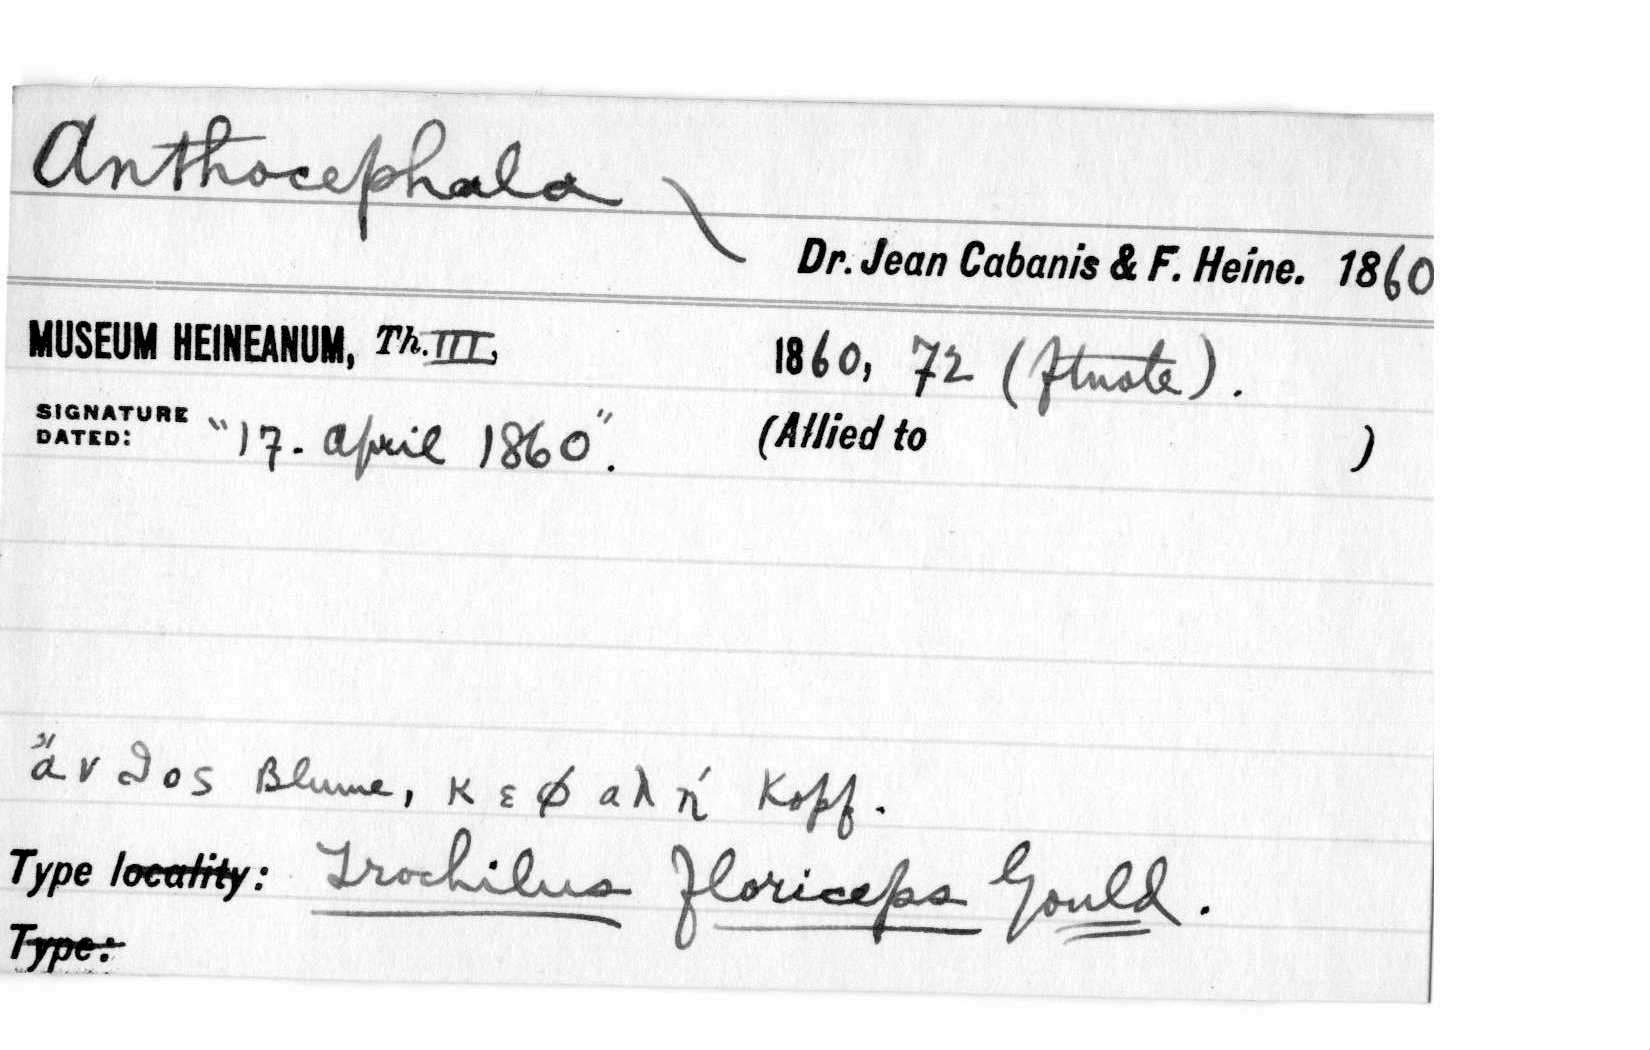 Anthocephala
Dr. Jean Cabanis & F. Heine. 1860
MUSEUM HEINEANUM, Th. III, 1860, 72 (ftnote).
SIGNATURE DATED: "17. April 1860". (Allied to )
ἄνθος Blume, κεφαλή Kopf.
Type locality: Trochilus floriceps Gould.
Type: